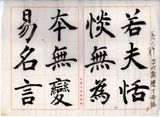 若夫恬
惔無為
本無變
易名言